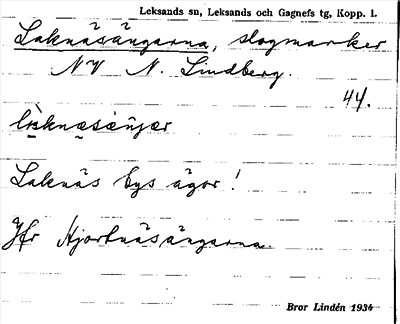 Leksands sn, Leksands och Gagnefs tg, Kopp. l.
Laknäsängarna, slogmarker
NV N. Lindberg.
44.
Laknäs bys ägor!
Jfr Hjortnäsängarna.
Bror Lindén 1934